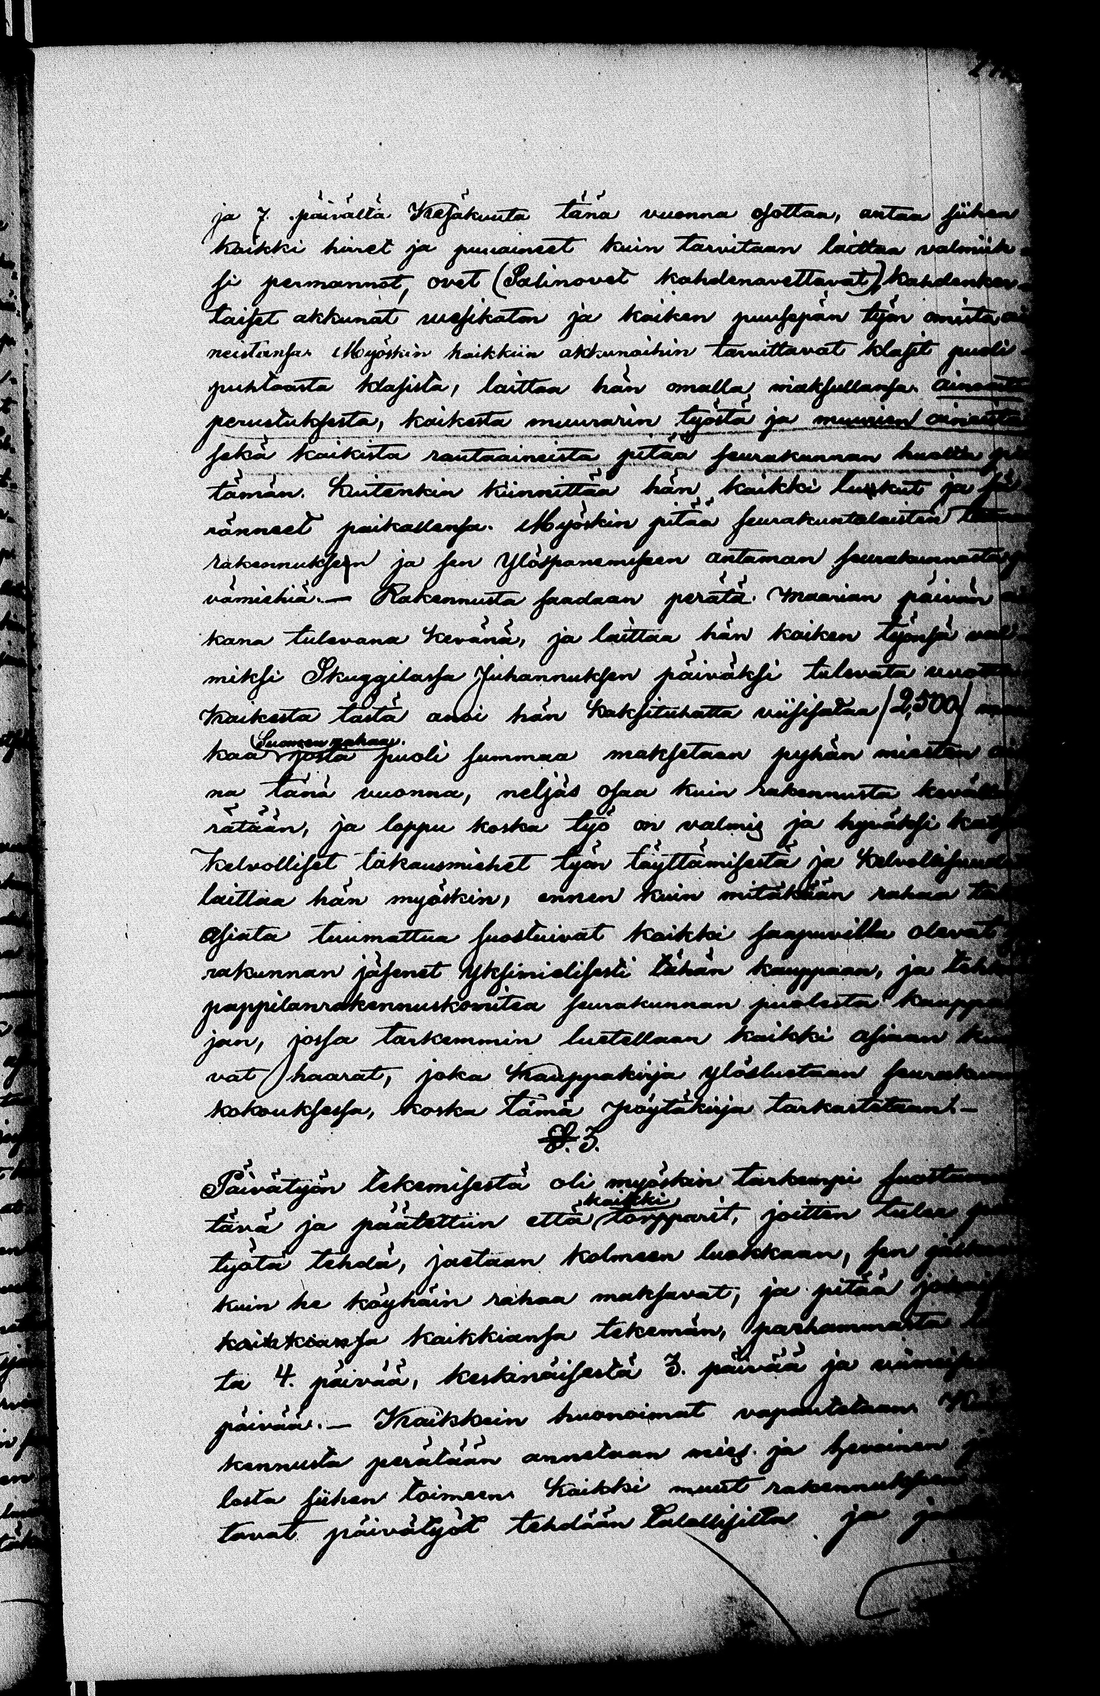 ja 7. päivältä Kesäkuuta tänä vuonna osottaa, antaa siihen
kaikki hirret ja puuaineet kuin tarvitaan laittaa valmiik
si permannot, ovet (Salinovet kahdenavettavat), kahdenker
taiset akkunat vesikaton ja kaiken puusepän työn omista ai
neistansa. Myöskin kaikkiin akkunoihin tarvittavat klasit puoli
puhtaasta klasista, laittaa hän omalla maksullansa. Ainoasta
perustuksesta, kaikesta muurarin työstä ja muurien aineista
sekä kaikista rautaaineista pitää seurakunnan huolta
tämän. Kuitenkin kiinnittää hän kaikki luukut ja
ränneet paikallensa. Myöskin pitää seurakuntalaisten
rakennuksen ja sen ylöspanemiseen antaman seurakunnasta
vämiehiä. — Rakennusta saadaan perätä Maarian päivän ai
kana tulevana kevänä, ja laittaa hän kaiken työnsä val
miksi Skuggilassa Juhannuksen päiväksi tulevata vuotta
Kaikesta tästä anoi hän kaksituhatta viisisataa /2,500/ mark
kaa Suomen rahaa, josta puoli summaa maksetaan pyhän miesten ai
na tänä vuonna, neljäs osaa kuin rakennusta keväällä
rätään, ja loppu koska työ on valmis ja hyväksi
Kelvolliset takausmiehet työn täyttämisestä ja kelvollisuude
laittaa hän myöskin, ennen kuin mitäkään rahaa
Asiata tuumattua suostuivat kaikki saapuvilla olevat
rakunnan jäsenet yksimielisesti tähän kauppaan, ja
pappilanrakennuskomitea seurakunnan puolesta kauppa
jan, jossa tarkemmin luetellaan kaikki asiaan
vat haarat, joka kauppakirja ylösluetaan seurakunnan
kokouksessa, koska tämä pöytäkirja tarkastetaan. —
§. 3.
Päivätyön tekemisestä oli myöskin tarkempi suostum
tävä ja päätettiin että kaikki torpparit, joitten tulee
työtä tehdä, jaetaan kolmeen luokkaan, sen jälkeen
kuin he köyhäin rahaa maksavat, ja pitää
kaikkiansa tekemän, parhammasta
ta 4. päivää, keskinäisestä 3. päivää ja viimeise
päivää. — Kaikkein huonoimat vapautetaan.
kennusta perätään annetaan mies ja hevoinen
losta siihen toimeen. Kaikki muut rakennuksen
tavat päivätyöt tehdään talollisilta ja